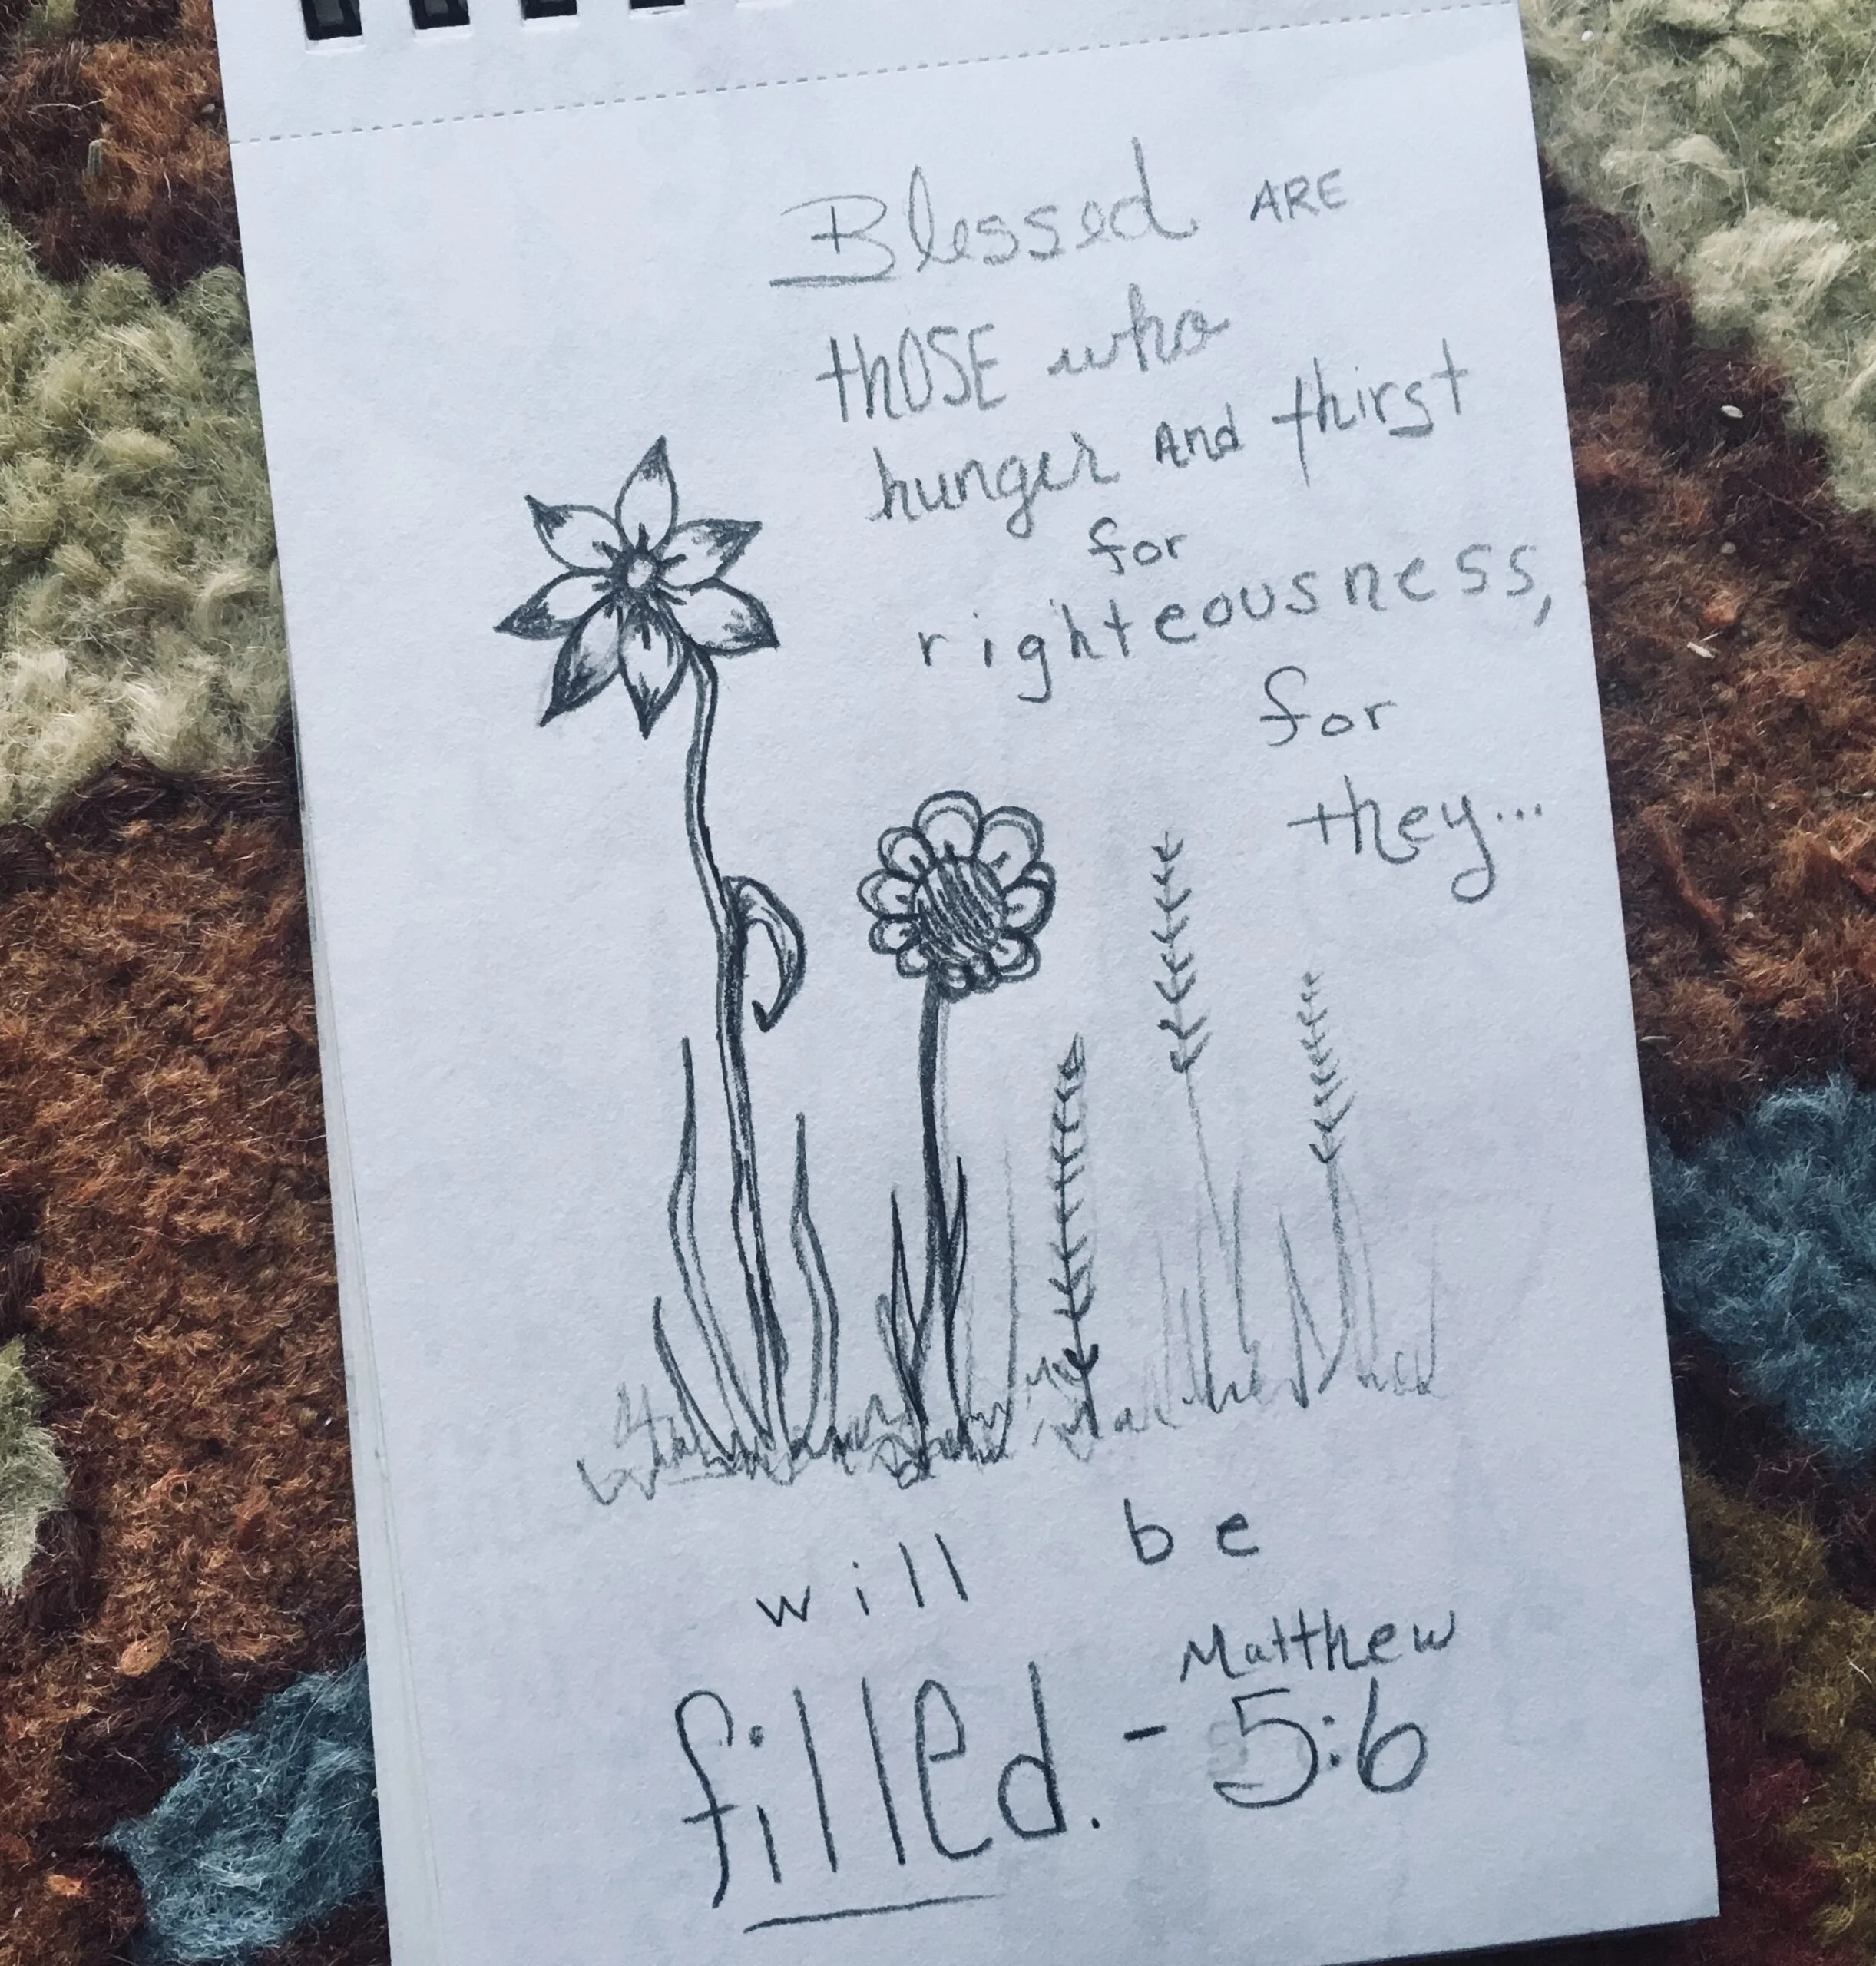 Blessed ARE
thOSE who
hunger And thirst
for
righteousness,
for
they...
will be
filled. - Matthew
5:6